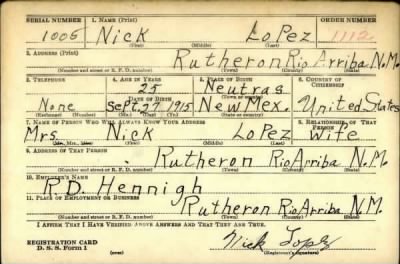 SERIAL NUMBER 1. NAME (Print) ORDER NUMBER
1005 Nick LoPez 1112
(First) (Middle) (Last)
2. ADDRESS (Print)
Rutheron Rio Arriba N.M.
(Number and street or R. F. D. number) (Town) (County) (State)
3. TELEPHONE 4. AGE IN YEARS 5. PLACE OF BIRTH 6. COUNTRY OF CITIZENSHIP
25 Neutras
DATE OF BIRTH (Town or county)
None Sept. 27 1915 New Mex. United States
(Exchange) (Number) (Mo.) (Day) (Yr.) (State or country)
7. NAME OF PERSON WHO WILL ALWAYS KNOW YOUR ADDRESS 8. RELATIONSHIP OF THAT PERSON
Mrs. Nick LoPez Wife
(Mr., Mrs., Miss) (First) (Middle) (Last)
9. ADDRESS OF THAT PERSON
Rutheron Rio Arriba N.M.
(Number and street or R. F. D. number) (Town) (County) (State)
10. EMPLOYER'S NAME
R.D. Hennigh
11. PLACE OF EMPLOYMENT OR BUSINESS
Rutheron Rio Arriba N.M.
(Number and street or R. F. D. number) (Town) (County) (State)
I AFFIRM THAT I HAVE VERIFIED ABOVE ANSWERS AND THAT THEY ARE TRUE.
REGISTRATION CARD Nick Lopez
D. S. S. Form 1 (over) (Registrant's signature)